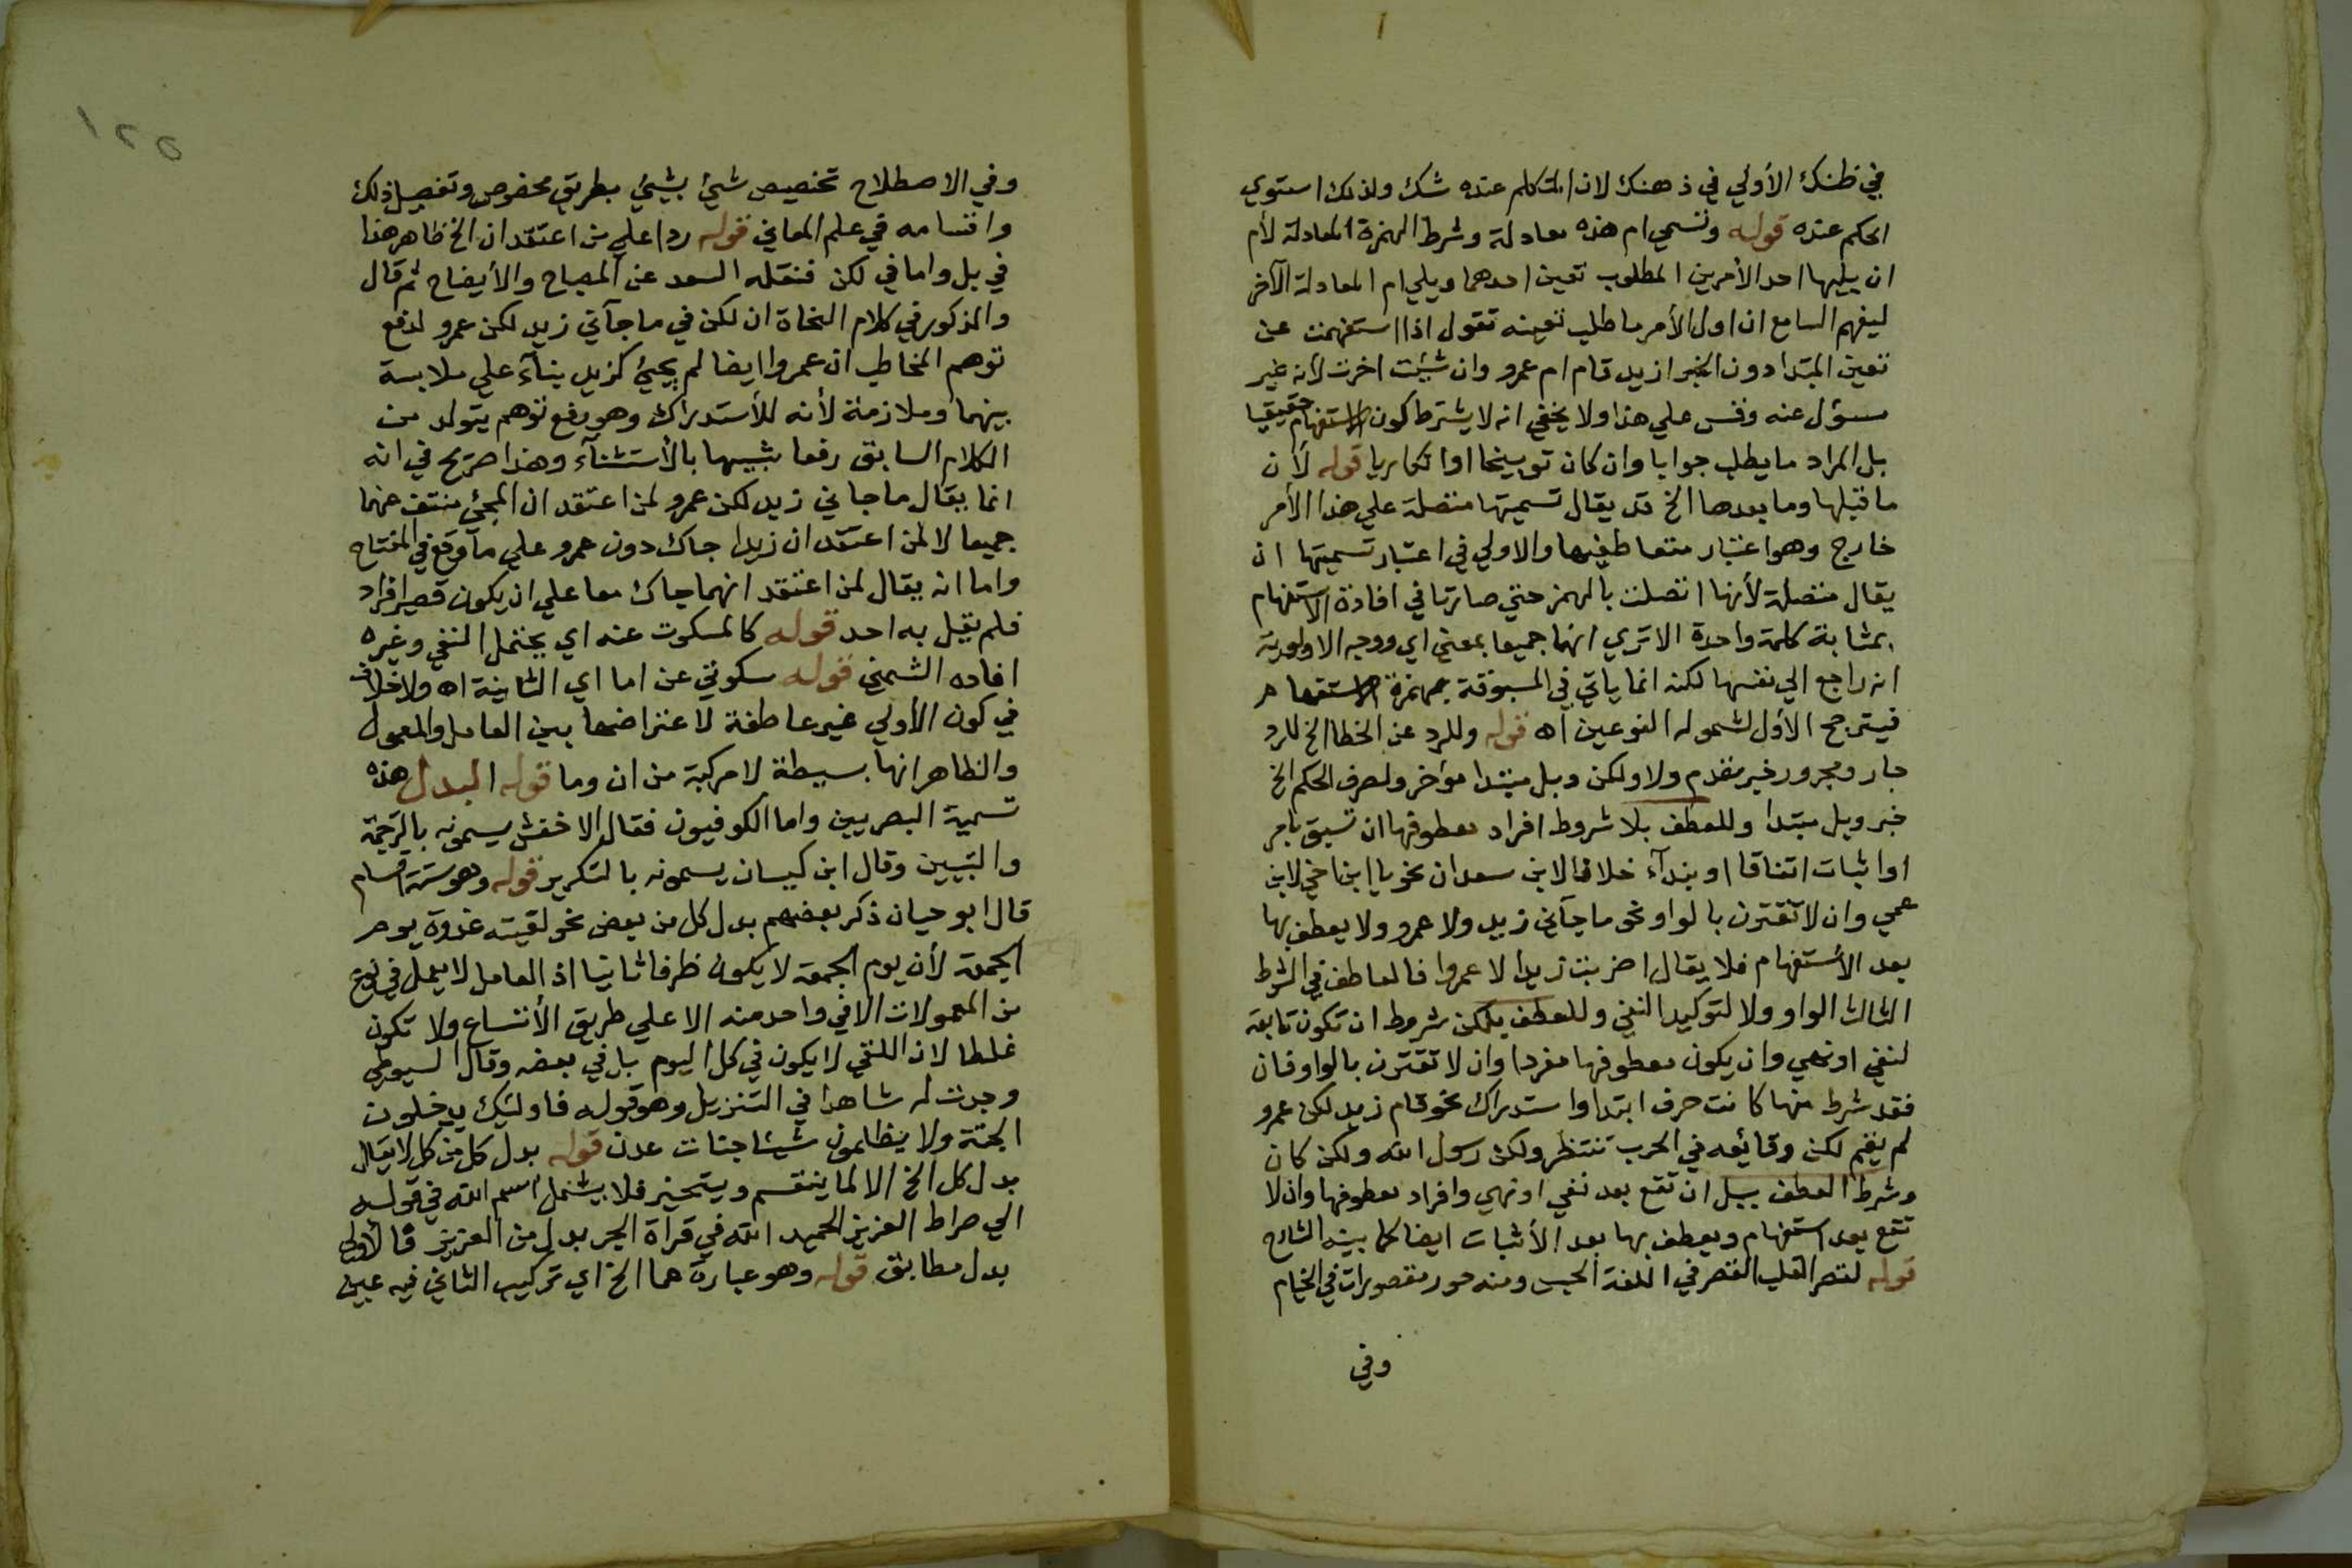 في ظنك الأولي في ذهنك لان المتكلم عنده شك ولذلك استوي
الحكم عنده قوله وتسمي ام هذه معادلة وشرط الهمزة المعادلة لأم
ان يليها احد الأمرين المطلوب تعين احدهما ويلي ام المعادلة الآخر
ليفهم السامع ان اول الأمر ما طلب تعينه تقول اذا استفهمت عن
تعين المبتدا دون الخبر ازيد قام ام عمرو وان شئت اخرت لانه غير
مسؤل عنه وقس علي هذا ولا يخفي انه لا يشترط كون الاستفهام حقيقيا
بل المراد ما يطلب جوابا وان كان توبيخا او انكاريا قوله لأن
ما قبلها وما بعدها الخ قد يقال تسميتها متصلة علي هذا الأمر
خارج وهو اعتبار متعاطفيها والاولي في اعتبار تسميتها ان
يقال متصلة لأنها اتصلت بالهمز حتي صارتا في افادة الاستفهام
بمثابة كلمة واحدة الا تري انهما جميعا بمعني اي ووجه الاولوية
انه راجع الي نفسها لكنه انما ياتي في المسبوقة بهمزة الاستفهام
فيترجح الأول لشموله النوعين اه قوله وللرد عن الخطا الخ للرد
جار ومجرور خبر مقدم ولا ولكن وبل مبتدا مؤخر ولصرف الحكم الخ
خبر وبل مبتدا وللعطف بلا شروط افراد معطوفها ان تسبق بامر
او اثبات اتفاقا او بندآء خلافا لابن سعدان نحو يا ابن اخي لا ابن
عمي وان لا تقترن بالواو نحو ما جآني زيد ولا عمرو ولا يعطف بها
بعد الأستفهام فلا يقال اضربت زيدا لا عمروا فالعاطف في الشرط
الثالث الواو ولا لتوكيد النفي وللعطف بلكن شروط ان تكون تابعة
لنفي او نهي وان يكون معطوفها مفردا وان لا تقترن بالواو فان
فقد شرط منها كانت حرف ابتدا واستدراك نحو قام زيد لكن عمرو
لم يقم لكن وقائعه في الحرب تنتظر ولكن رسول الله ولكن كان
وشرط العطف ببل ان تقع بعد نفي او نهي وافراد معطوفها وان لا
تقع بعد استفهام ويعطف بها بعد الأثبات ايضا كما بينه الشارح
قوله لقصر القلب القصر في اللغة الحبس ومنه حور مقصورات في الخيام
وفي
١٢٥
وفي الاصطلاح تخصيص شيئ بشيئ بطريق مخصوص وتفصيل ذلك
واقسامه في علم المعاني قوله ردا علي من اعتقد ان الخ ظاهر هذا
في بل واما في لكن فنقله السعد عن المصباح والأيضاح ثم قال
والمذكور في كلام النحاة ان لكن في ما جآني زيد لكن عمرو لدفع
توهم المخاطب ان عمروا ايضا لم يجيئ كزيد بنآء علي ملابسة
بينهما وملازمة لأنه للأستدراك وهو دفع توهم يتولد من
الكلام السابق رفعا شبيها بالأستثنآء وهذا صريح في انه
انما يقال ما جاني زيد لكن عمرو لمن اعتقد ان المجئ منتف عنهما
جميعا لا لمن اعتقد ان زيدا جاك دون عمرو علي ما وقع في المفتاح
واما انه يقال لمن اعتقد انهما جاك معا علي ان يكون قصر افراد
فلم يقل به احد قوله كالمسكوت عنه اي يحتمل النفي وغيره
افاده الشمني قوله سكوتي عن اما اي الثانية اه ولا خلاف
في كون الأولي غير عاطفة لاعتراضها بين العامل والمعمول
والظاهر انها بسيطة لا مركبة من ان وما قوله البدل هذه
تسمية البصريين واما الكوفيون فقال الاخفش يسمونه بالترجمة
والتبيين وقال ابن كيسان يسمونه بالتكرير قوله وهو ستة اقسام
قال ابو حيان ذكر بعضهم بدل كل من بعض نحو لقيته غدوة يوم
الجمعة لأن يوم الجمعة لا يكون ظرفا ثانيا اذ العامل لا يعمل في نوع
من المعمولات الا في واحد منه الا علي طريق الأتساع ولا تكون
غلطا لان اللقي لا يكون في كل اليوم بل في بعضه وقال السيوطي
وجدت له شاهدا في التنزيل وهو قوله فاولئك يدخلون
الجنة ولا يظلمون شيئا جنات عدن قوله بدل كل من كل لا يقال
بدل كل الخ الا لما ينقسم ويتحيز فلا يشمل اسم الله في قوله
الي صراط العزيز الحميد الله في قرأة الجر بدل من العزيز فالأولي
بدل مطابق قوله وهو عبارة عما الخ اي تركيب الثاني فيه عين